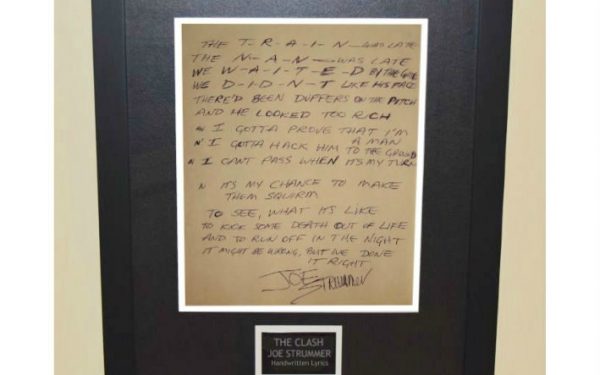 THE T-R-A-I-N-WAS LATE
THE M-A-N-WAS LATE
WE W-A-I-T-E-D BY THE GATE
WE D-I-D-N-T LIKE HIS FACE
THERE'D BEEN DUFFERS ON THE PITCH
AND HE LOOKED TOO RICH
N I GOTTA PROVE THAT I'M A MAN
N' I GOTTA HACK HIM TO THE GROUND
N I CANT PASS WHEN ITS MY TURN
N ITS MY CHANCE TO MAKE
THEM SQUIRM
TO SEE, WHAT ITS LIKE
TO KICK SOME DEATH OUT OF LIFE
AND TO RUN OFF IN THE NIGHT
IT MIGHT BE WRONG, BUT WE DONE
IT RIGHT
JOE STRUMMER
THE CLASH
JOE STRUMMER
Handwritten Lyrics